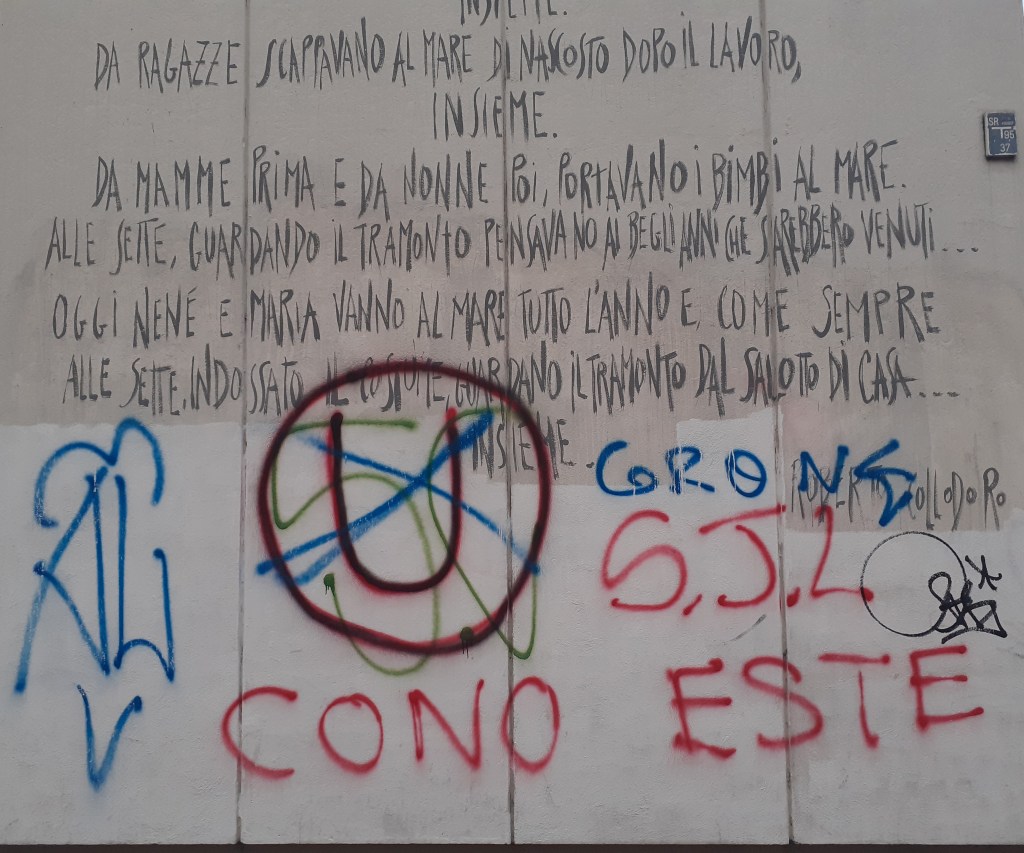 INSIEME.
DA RAGAZZE SCAPPAVANO AL MARE DI NASCOSTO DOPO IL LAVORO,
INSIEME.
DA MAMME PRIMA E DA NONNE POI, PORTAVANO I BIMBI AL MARE.
ALLE SETTE, GUARDANDO IL TRAMONTO PENSAVANO AI BEGLI ANNI CHE SAREBBERO VENUTI...
OGGI NENÉ E MARIA VANNO AL MARE TUTTO L'ANNO E, COME SEMPRE
ALLE SETTE, INDOSSATO IL COSTUME, GUARDANO IL TRAMONTO DAL SALOTTO DI CASA...
INSIEME.
SR
T95
37
U
S.J.L
CONO ESTE